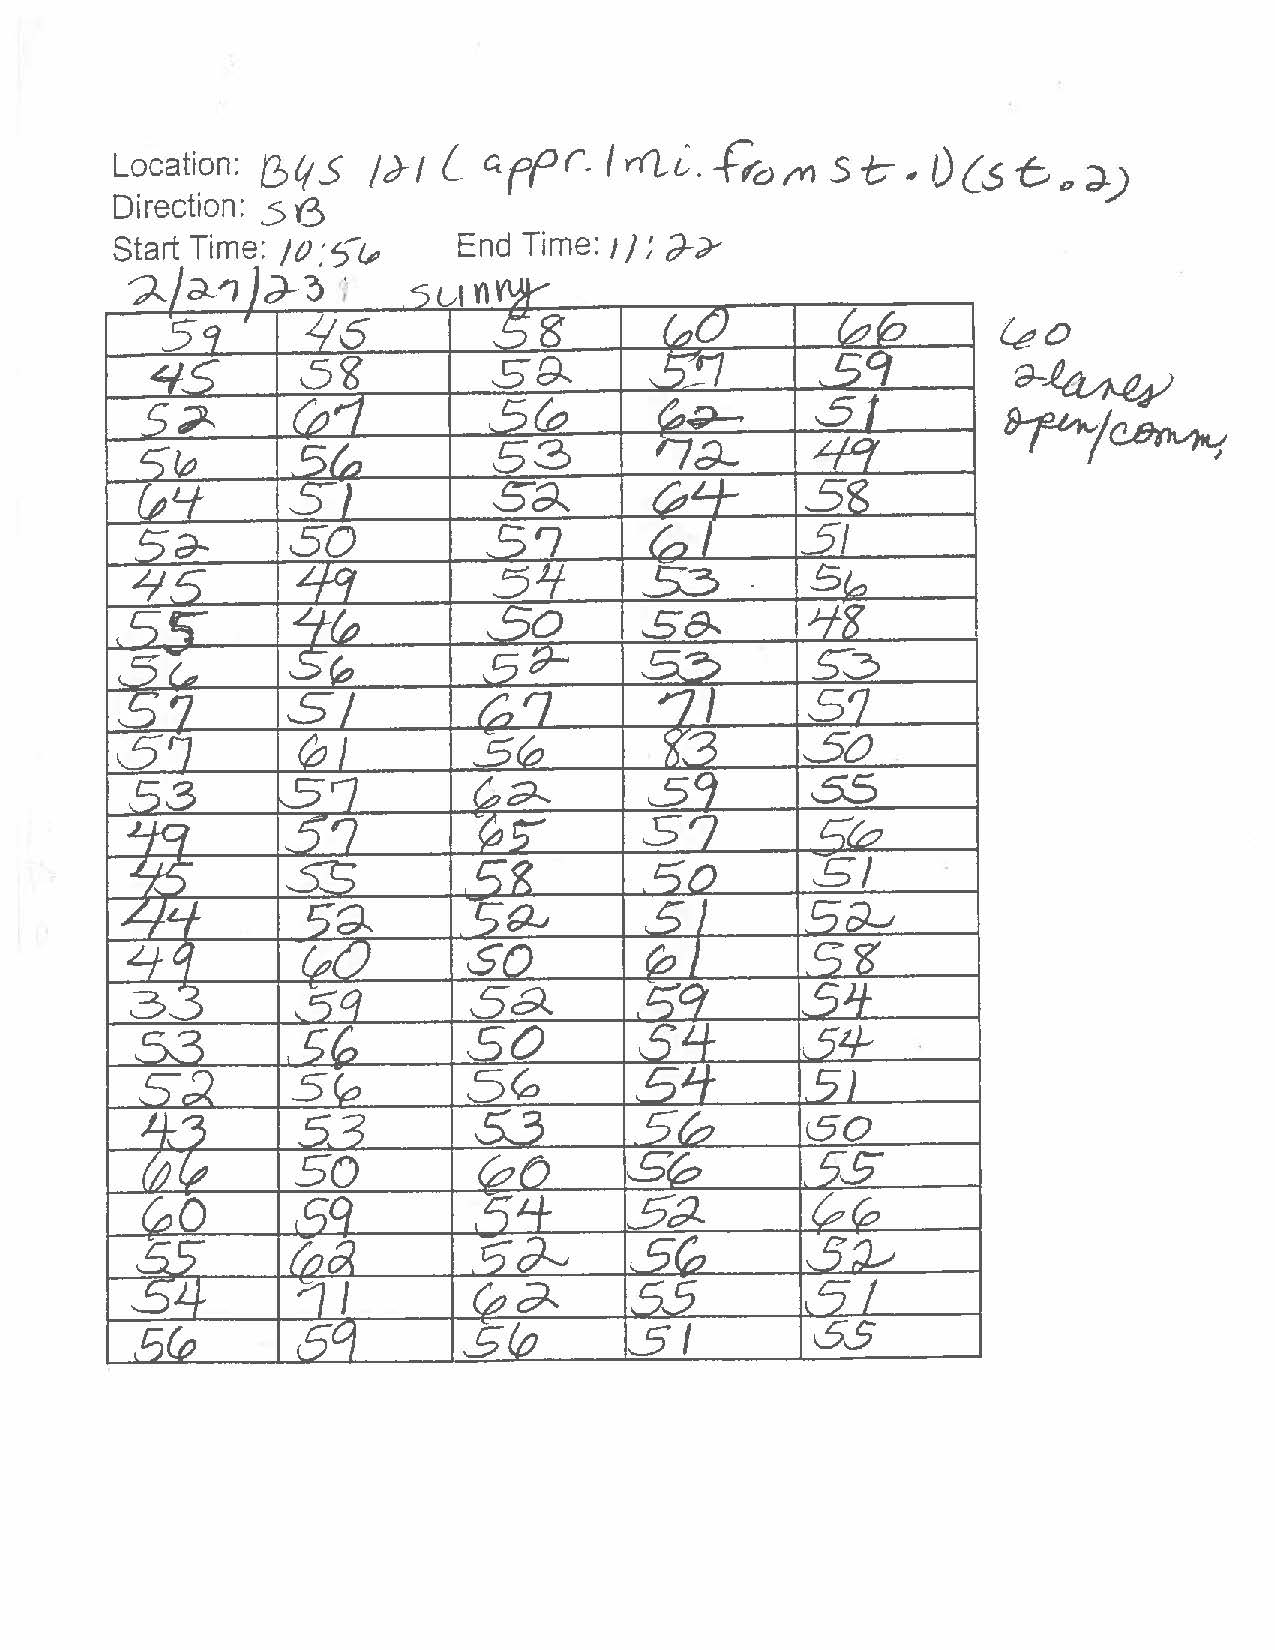 Location: BYS 121 ( appr. 1 mi. from St. 1) (st. 2)
Direction: SB
Start Time: 10:56 End Time: 11:22
2/27/23 sunny
59 45 58 60 66 60
45 58 52 57 59 2 lanes
52 67 56 62 51 open/comm.
56 56 53 72 49
64 51 52 64 58
52 50 57 61 51
45 49 54 53 56
55 46 50 52 48
56 56 52 53 53
57 51 67 71 57
57 61 56 83 50
53 57 62 59 55
49 57 65 57 56
45 55 58 50 51
44 52 52 51 52
49 60 50 61 58
33 59 52 59 54
53 56 50 54 54
52 56 56 54 51
43 53 53 56 50
66 50 60 56 55
60 59 54 52 66
55 62 52 56 52
54 71 62 55 51
56 59 56 51 55